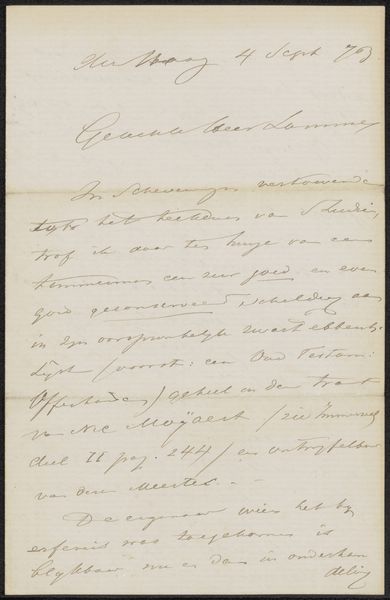 den Haag 4 Sept 73
Geachte Heer Lammer
In Scheveningen vertoevende
het van Studie,
trof ik daar ten huize van een
een zeer goed en even
goed geconserveerd schilderij aan
in zijn oorspronkelijke zwart ebben
Lijst (voorst: een Oud Testam:
Offerhande) geheel in den trant
van Nic Moÿaert /zie Immerzeel
deel II pag. 244/ en ontwijfelbaar
van dien Meester. -
De eigenaar wien het bij
erfenis was toegekomen is
blijkbaar nu en dan in